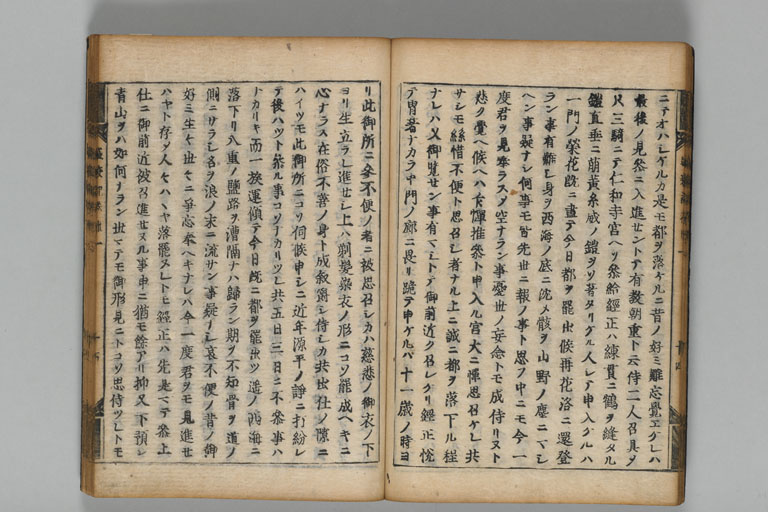 ニテオハシケルカ是モ都ヲ落ケルニ昔ノ好ミ難忘覺エケレハ
最後ノ見参ニ入進センントテ有教朝重ト云侍二人召具ヲ
只三騎ニテ仁和寺宮ヘリ参給經正ハ練貫ニ鶴ヲ縫タル
鎧直垂ニ萠黄糸威ノ鎧ヲソ著タリケル人シテ申入ケルハ
一門ノ榮花既ニ盡テ今日都ヲ罷出候再花洛ニ還登
ラン事有難シ身ヲ西海ノ底ニ沈メ骸ヲ山野ノ塵ニマシ
ヘン事疑ナシ何事モ皆先世ニ報ノ事ト思フ中ニモ今一
度君ヲ見奉ラスメ空ナラン事憂世ノ妄念トモ成侍リヌト
悲ク覺ヘ候ヘハ乍憚推参ト申入ル宮大ニ憚思召ケレ共
サシモ絲惜不便ト思召シ者ナル上ニ誠ニ都ヲ落下ル程
ナレハ又御覽セン事有マシトテ御前近ク召レケリ經正悦
テ冑著ナカラ中門ノ廊ニ畏リ跪テ申ケルハ十一歳ノ時ヨ
リ此御所ニ参不便ノ者ニ被思召シカハ慈悲ノ御衣ノ下
ヨリ生立ラレ進セシ上ハ剃髮染衣ノ形ニコソ罷成ヘキニ
心ナラス在俗不善ノ身ト成叙爵シ侍シカ共出仕ノ隙ニ
ハイツモ此御所ニコソ伺候申シニ近年源平ノ諍ニ打紛レ
テ後ハツト参ル事コソナカリツレ共五日三日ニ不参事ハ
ナカリキ而一族運傾テ今日既ニ都ヲ罷出ツ遥ノ西海ニ
落下リ八重ノ鹽路ヲ漕隔ナハ歸ラン期ヲ不知骨ヲ道ノ
側ニサラシ名ヲ浪ノ末ニ流サン事疑ナシ哀不便ノ昔ノ御
好ミ生々世々ニ爭忘奉ヘキナレハ今一度君ヲモ見進セ
ハヤト存ヌ人々ハハヤ落罷ヌレトモ經正ハ先是マテ参上
仕ニ御前近被召進セヌル事申ニ猶モ餘アリ抑又下預シ
青山ヲハ如何ナラン世マテモ御形見ニトコソ思侍ツレトモ